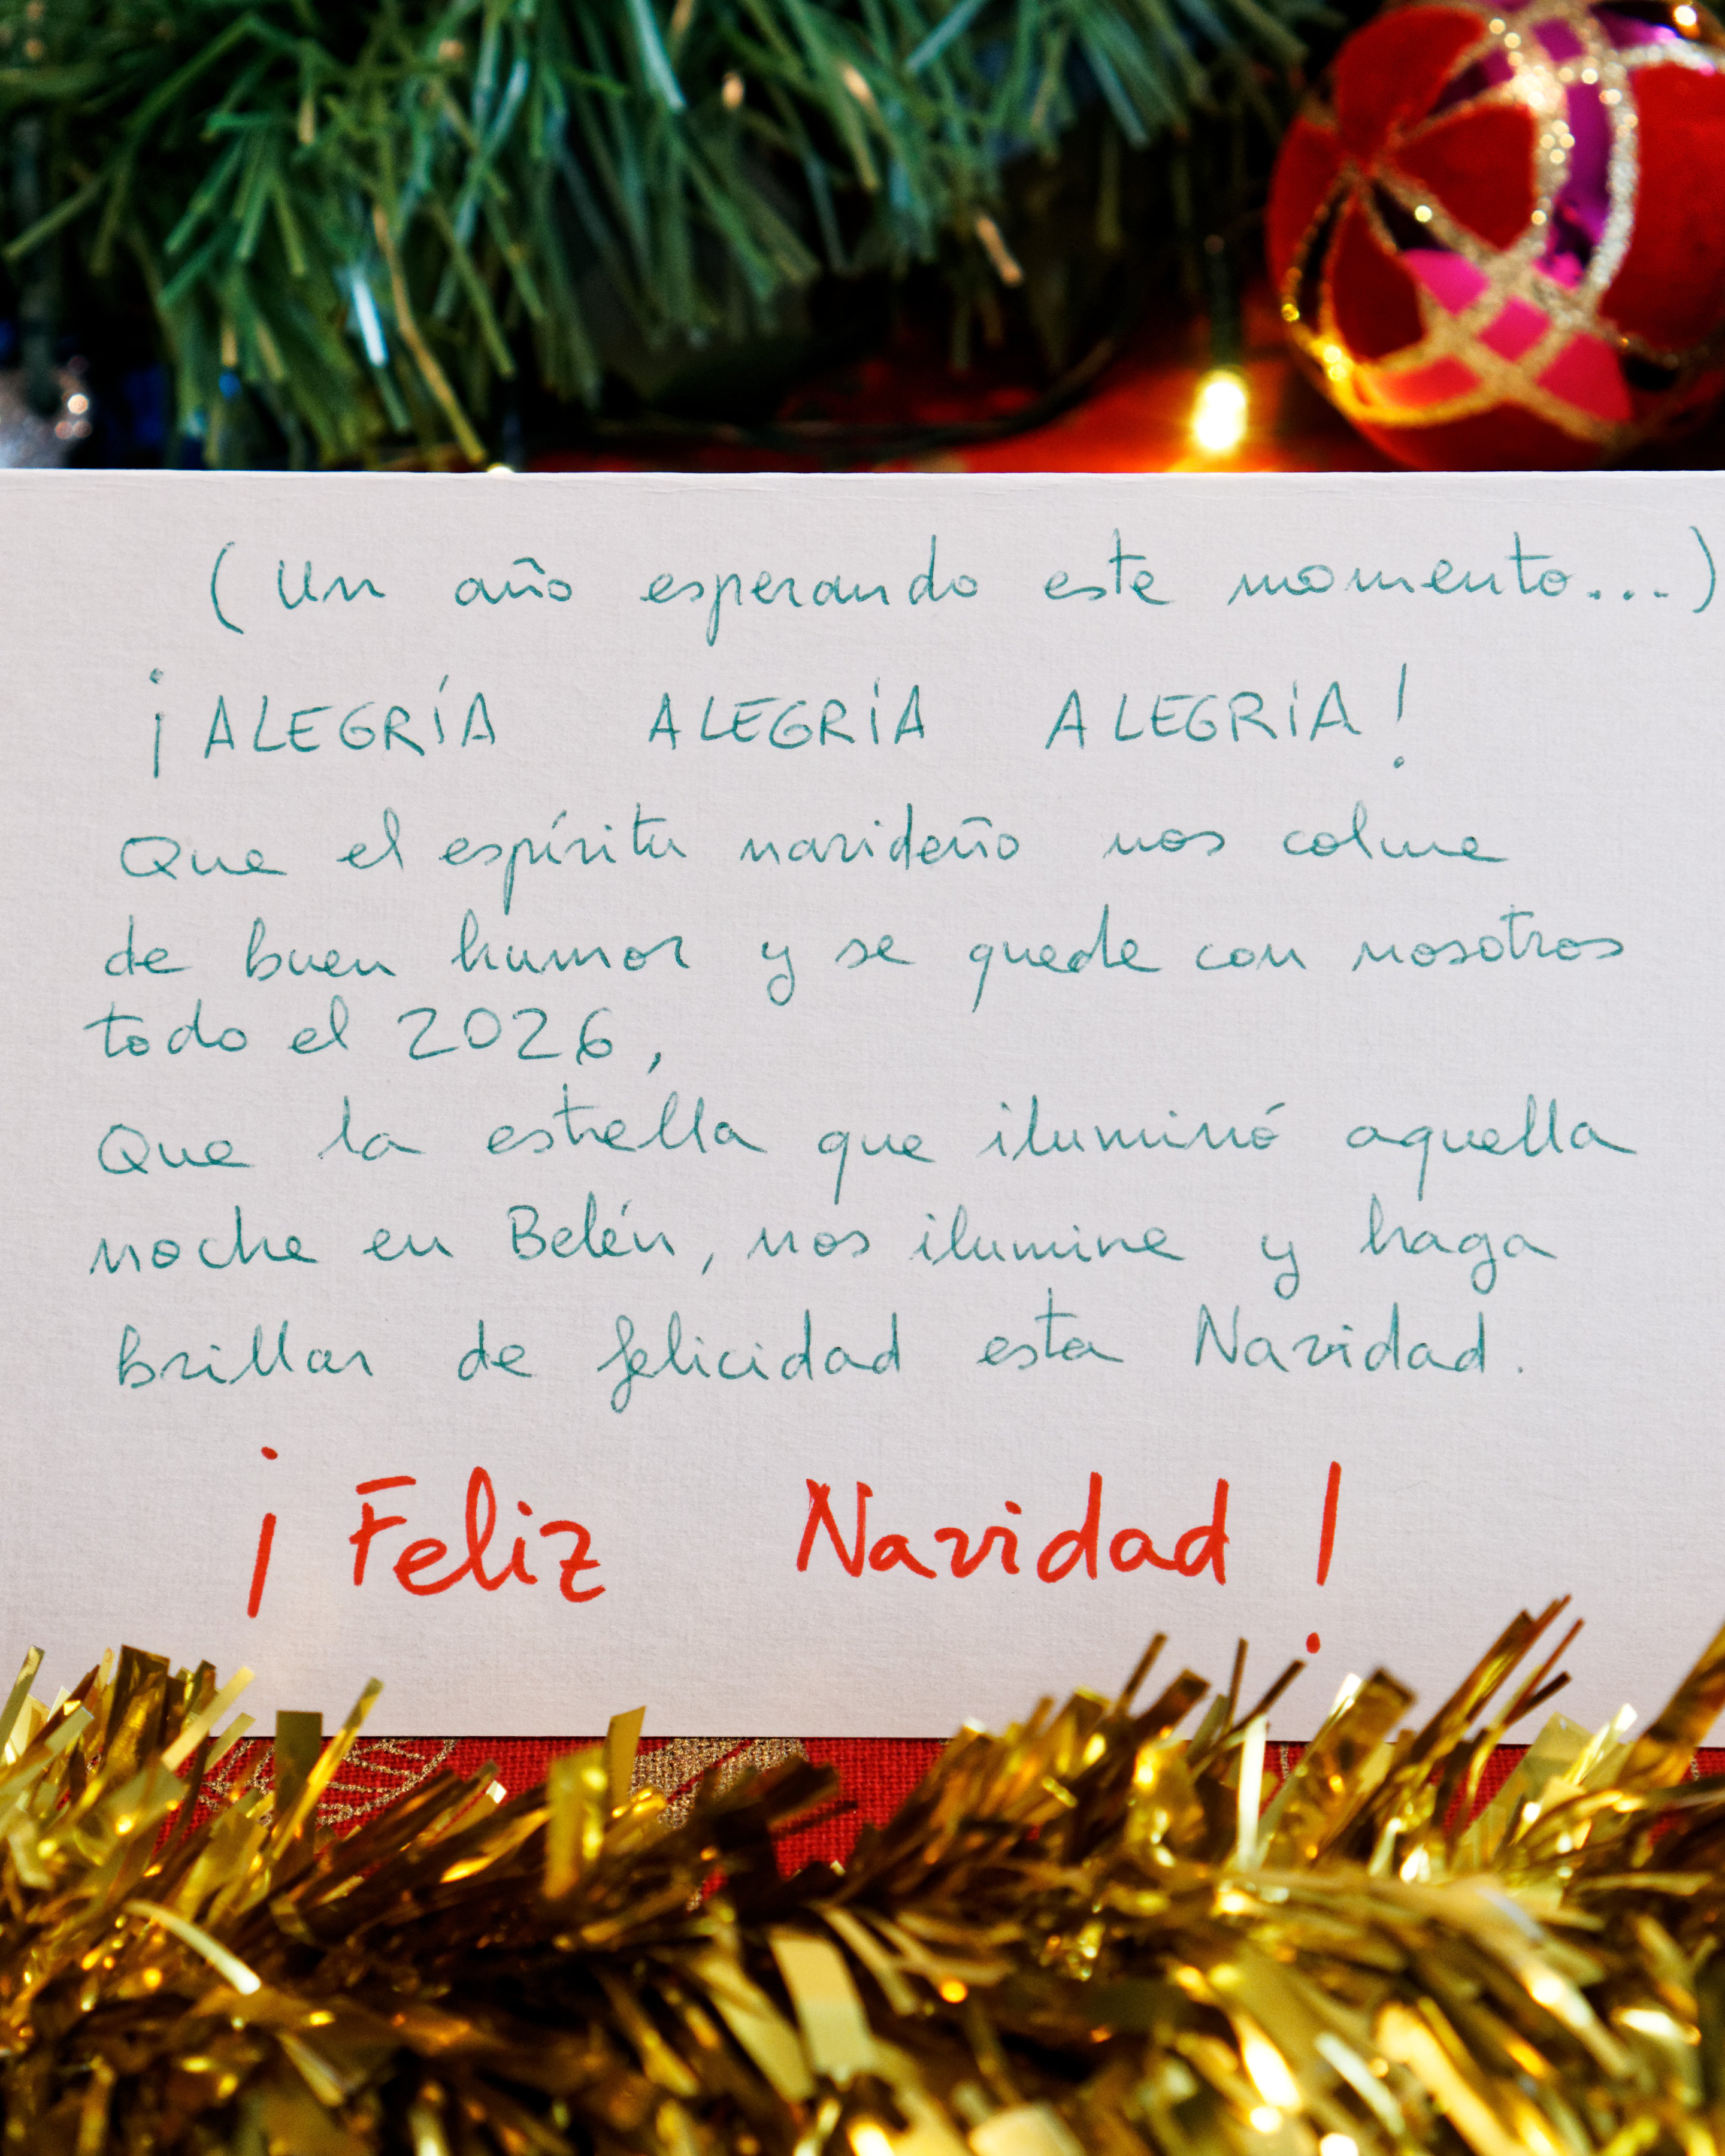 (Un año esperando este momento...)
¡ALEGRÍA ALEGRÍA ALEGRÍA!
Que el espíritu navideño nos colme
de buen humor y se quede con nosotros
todo el 2026,
Que la estrella que iluminó aquella
noche en Belén, nos ilumine y haga
brillar de felicidad esta Navidad.
¡Feliz Navidad!